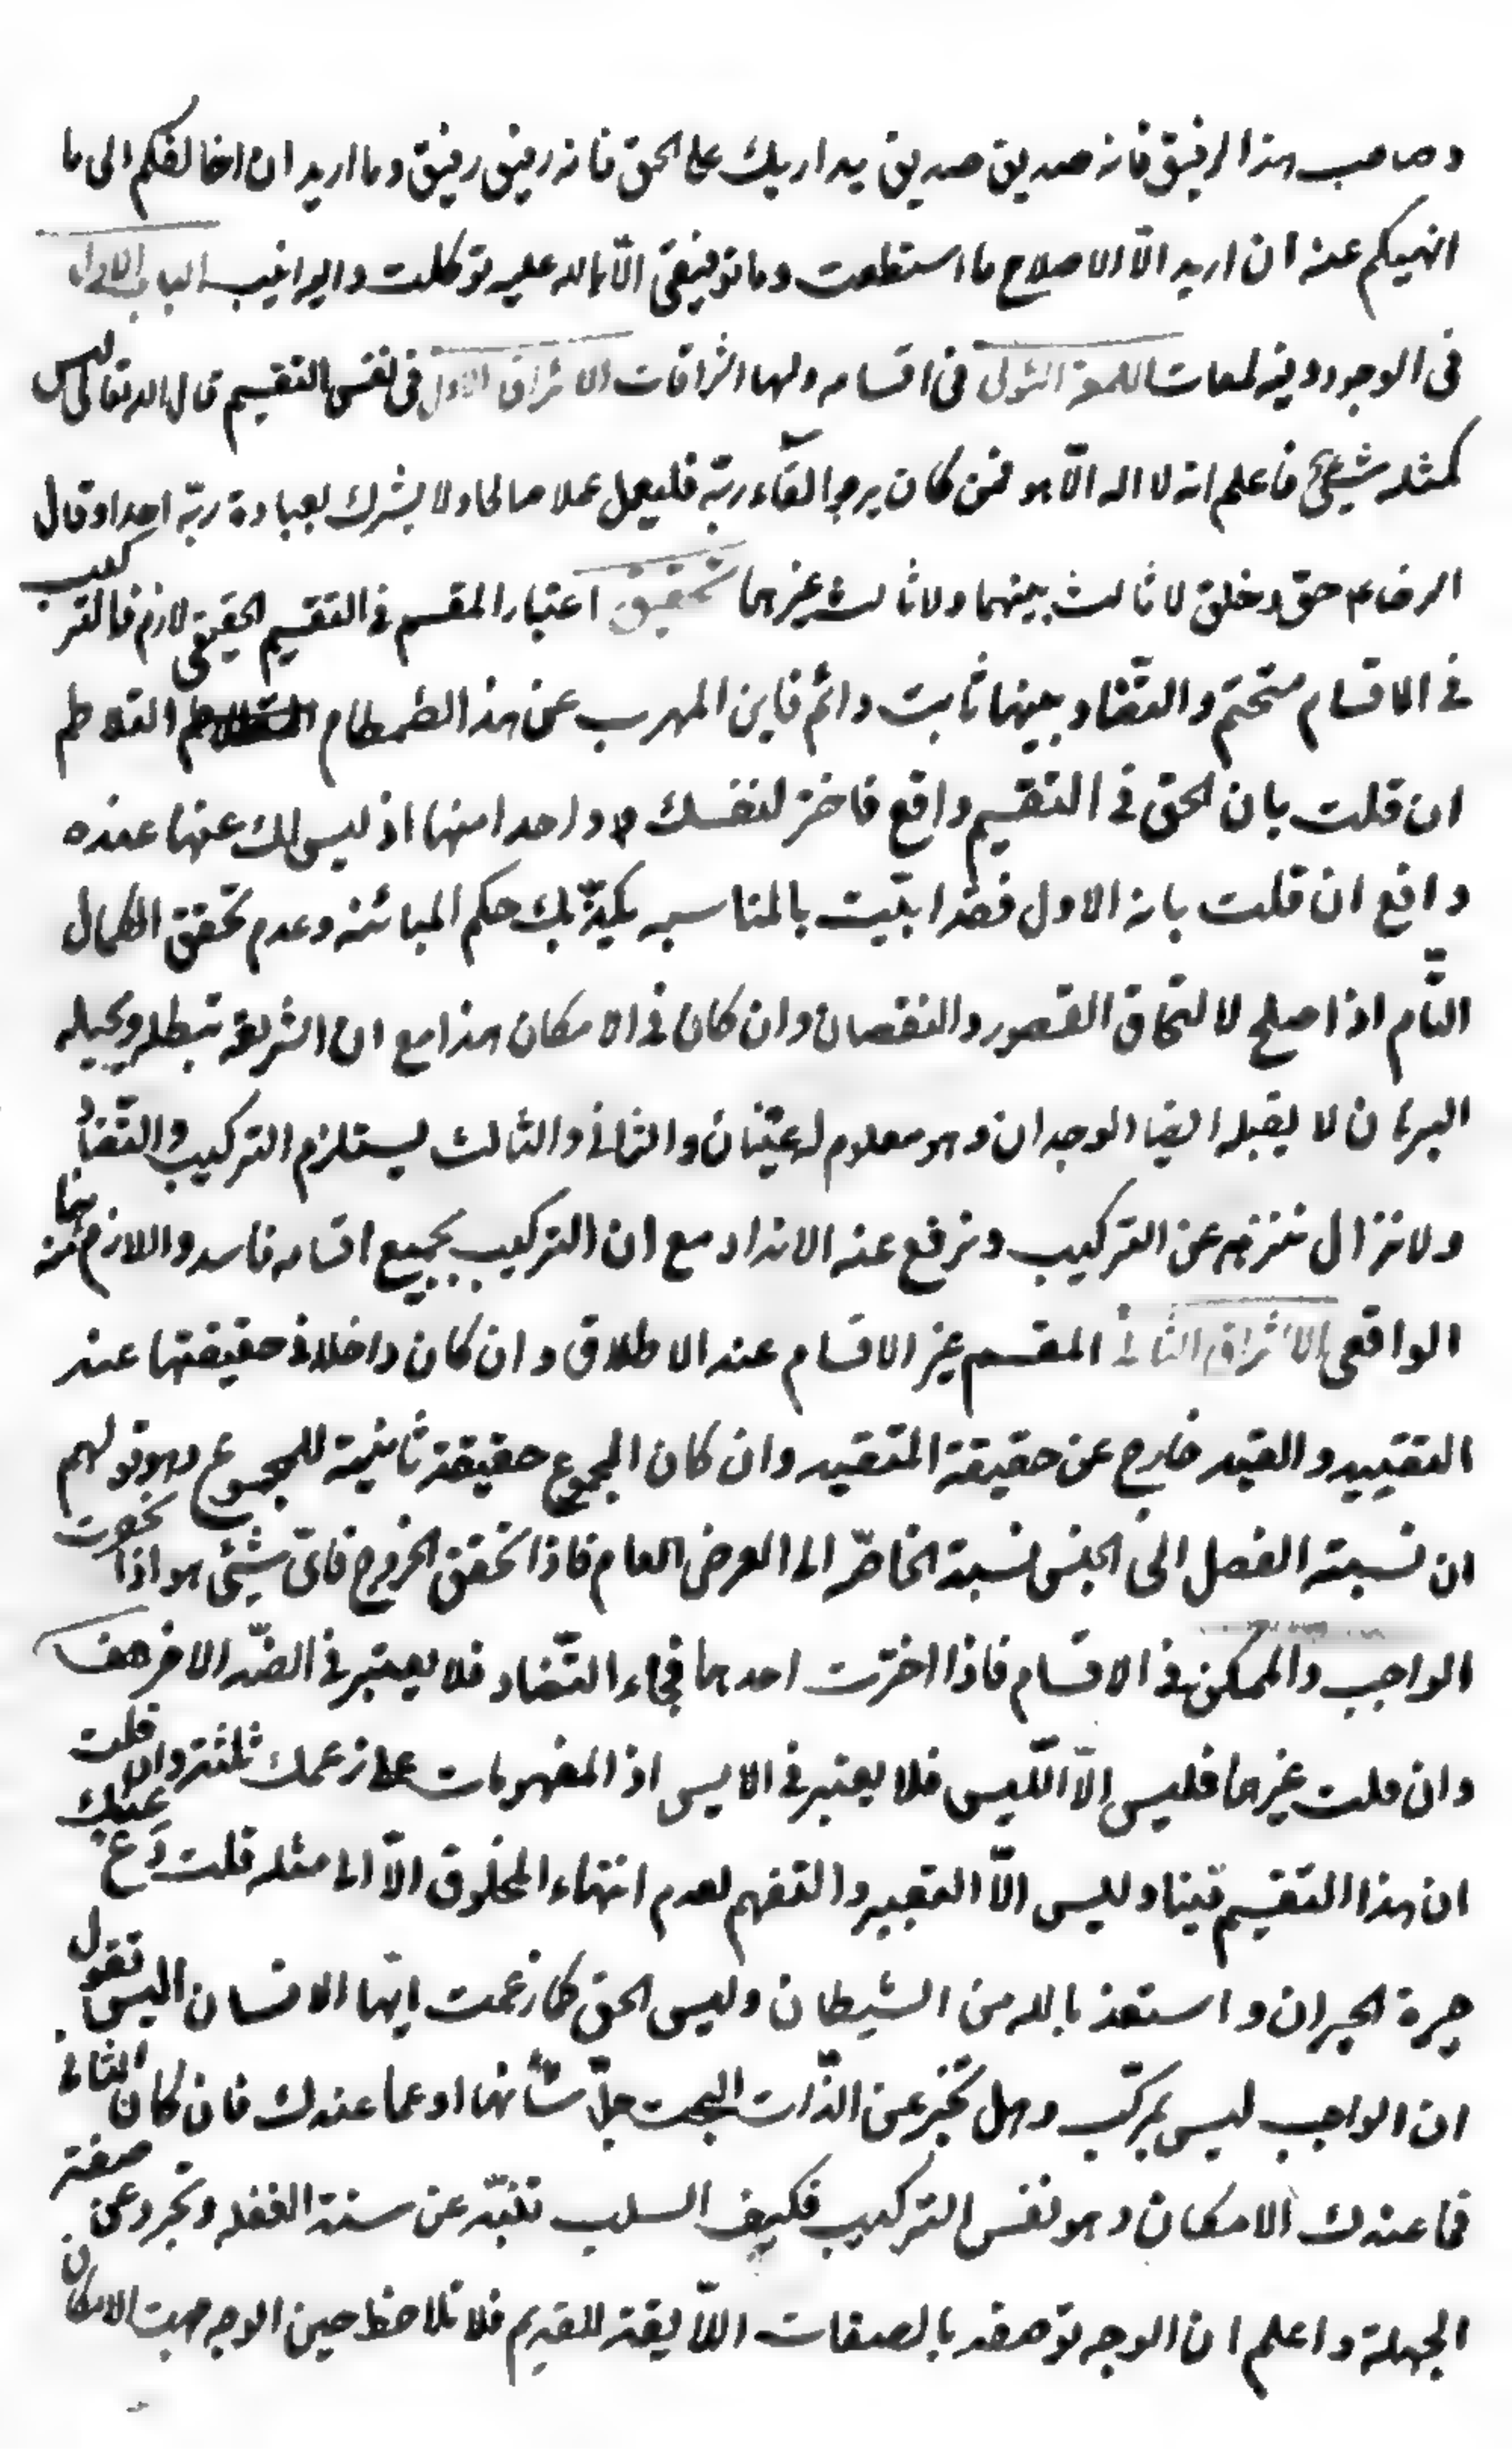 وصاحب هذا الرفيق فانه صديق صديق يداريك على الحق فانه رفيق رفيق وما اريد ان اخالفكم الى ما
انهيكم عنه ان اريد الّا الاصلاح ما استطعت وما توفيقى الّا بالله عليه توكلت واليه انيب الباب الاول
فى الوجود وفيه لمعات اللمعة الاولى فى اقسامه ولها اشراقات الاشراق الاول فى نفس التقسيم قال الله تعالى ليس
كمثله شيئ فاعلم انه لا اله الّا هو فمن كان يرجوا لقآء ربّه فليعمل عملا صالحا ولا يشرك بعبادة ربّه احدا وقال
الرضا ع حق وخلق لا ثالث بينهما ولا ثالث غيرهما تحقيق اعتبار المقسم فى التقسيم الحقيقى لازم فالتركيب
فى الاقسام متحتم والتضّاد بينها ثابت دائم فاين المهرب عن هذا الطمطام المتلاطم
ان قلت بان الحق فى التقسيم واقع فاختر لنفسك واحدا منها اذ ليس لك عنها عنده
دافع ان قلت بانه الاول فقد ابتّت بالمناسبه يكذّبك حكم المبائنه وعدم تحقق الكمال
التّام اذا صلح لالتحاق القصور والنقصان وان كان فى الامكان هذا مع ان الشريعة تبطله ويحيله
البرهان لا يقبله ايضا الوجدان وهو معلوم له عينان والثانى والثالث يستلزم التركيب والتّضاد
ولا نزال ننزهه عن التركيب ونرفع عنه الانداد مع ان التركيب بجميع اقسامه فاسد واللازم منه
الواقعى الاشراق الثانى المقسم غير الاقسام عند الاطلاق وان كان داخلا فى حقيقتها عند
التقييد والقيد خارج عن حقيقة المتقيد وان كان المجموع حقيقة ثانية للمجموع وهو قولهم
ان نسبة الفصل الى الجنس نسبة الخاصّه الى العرض العام فاذا تحقق الخروج فاىّ شيئى هو اذا
الواجب والممكن فى الاقسام فاذا اخترت احدهما فجاء التّضاد فلا يعتبر فى الضّد الاخر هف
وان قلت غيرهما فليس الّا اللّيس فلا يعتبر فى الايس اذ المفهومات على زعمك ثلثة وان قلت
ان هذا التقسيم فينا وليس الّا التعبير والتفهم لعدم انتهاء المخلوق الّا الى مثله قلت دع عنك
حيرة الحيران واستعذ بالله من الشيطان وليس الحق كما زعمت ايّها الانسان اليس تقول
ان الواجب ليس بمركب وهل تخبر عن الذّات البحت جلّ شأنها او عما عندك فان كان الثانى
فما عندك الامكان وهو نفس التركيب فكيف السلب تنبّه عن سنة الغفله وتجرد عن صفة
الجهلة واعلم ان الوجه توصفه بالصفات اللّايقة للقديم فلا تلاحظ حين الوجه جهت الامكان